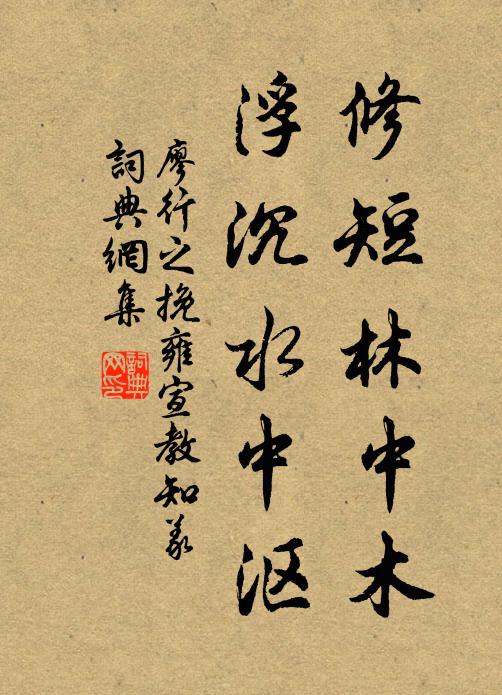 修短林中木
浮沉水中沤
廖行之挽雍宣教知义
詞典網集
詞典网印